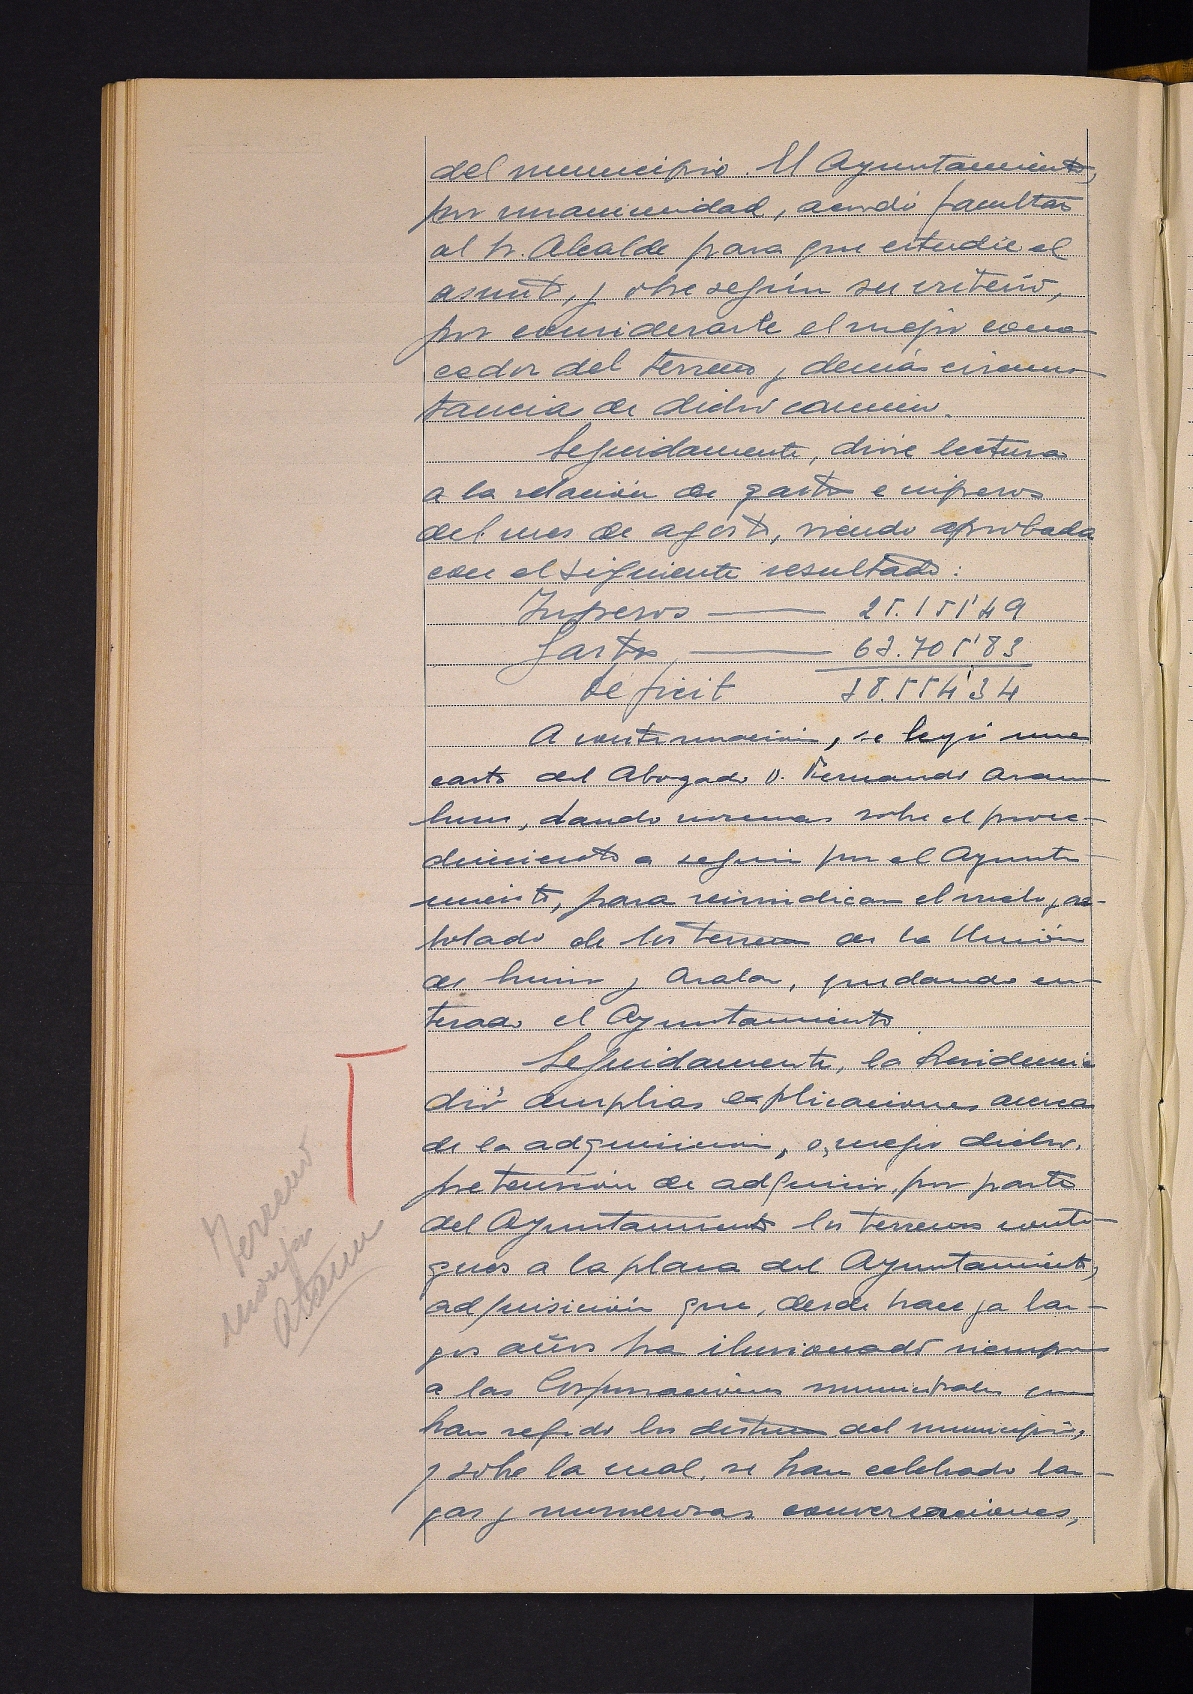 del municipio. El Ayuntamiento,
por unanimidad, acordó facultar
al Sr. Alcalde para que estudie el
asunto, y obre según su criterio,
por considerarle el mejor cono-
cedor del terreno y demás circuns-
tancias de dicho camino.
Seguidamente, dióse lectura
a la relación de gastos e ingresos
del mes de agosto, siendo aprobada
con el siguiente resultado:
Ingresos — 25.151'49
Gastos — 63.705'83
Déficit 38.554'34
A continuación, se leyó una
carta del Abogado D. Fernando Aram-
buru, dando normas sobre el proce-
dimiento a seguir por el Ayunta-
miento, para reivindicar el suelo y ar-
bolado de los terrenos de la Unión
de Enirio y Aralar, quedando en-
terado el Ayuntamiento
Seguidamente, la Presidencia
dió amplias explicaciones acerca
de la adquisición, o, mejor dicho,
pretensión de adquirir, por parte
del Ayuntamiento los terrenos conti-
guos a la plaza del Ayuntamiento,
adquisición que, desde hace ya lar-
gos años ha ilusionado siempre
a las Corporaciones municipales que
han regido los destinos del municipio,
y sobre la cual, se han celebrado lar-
gas y numerosas conversaciones,
Terreno
monjas
Ataun